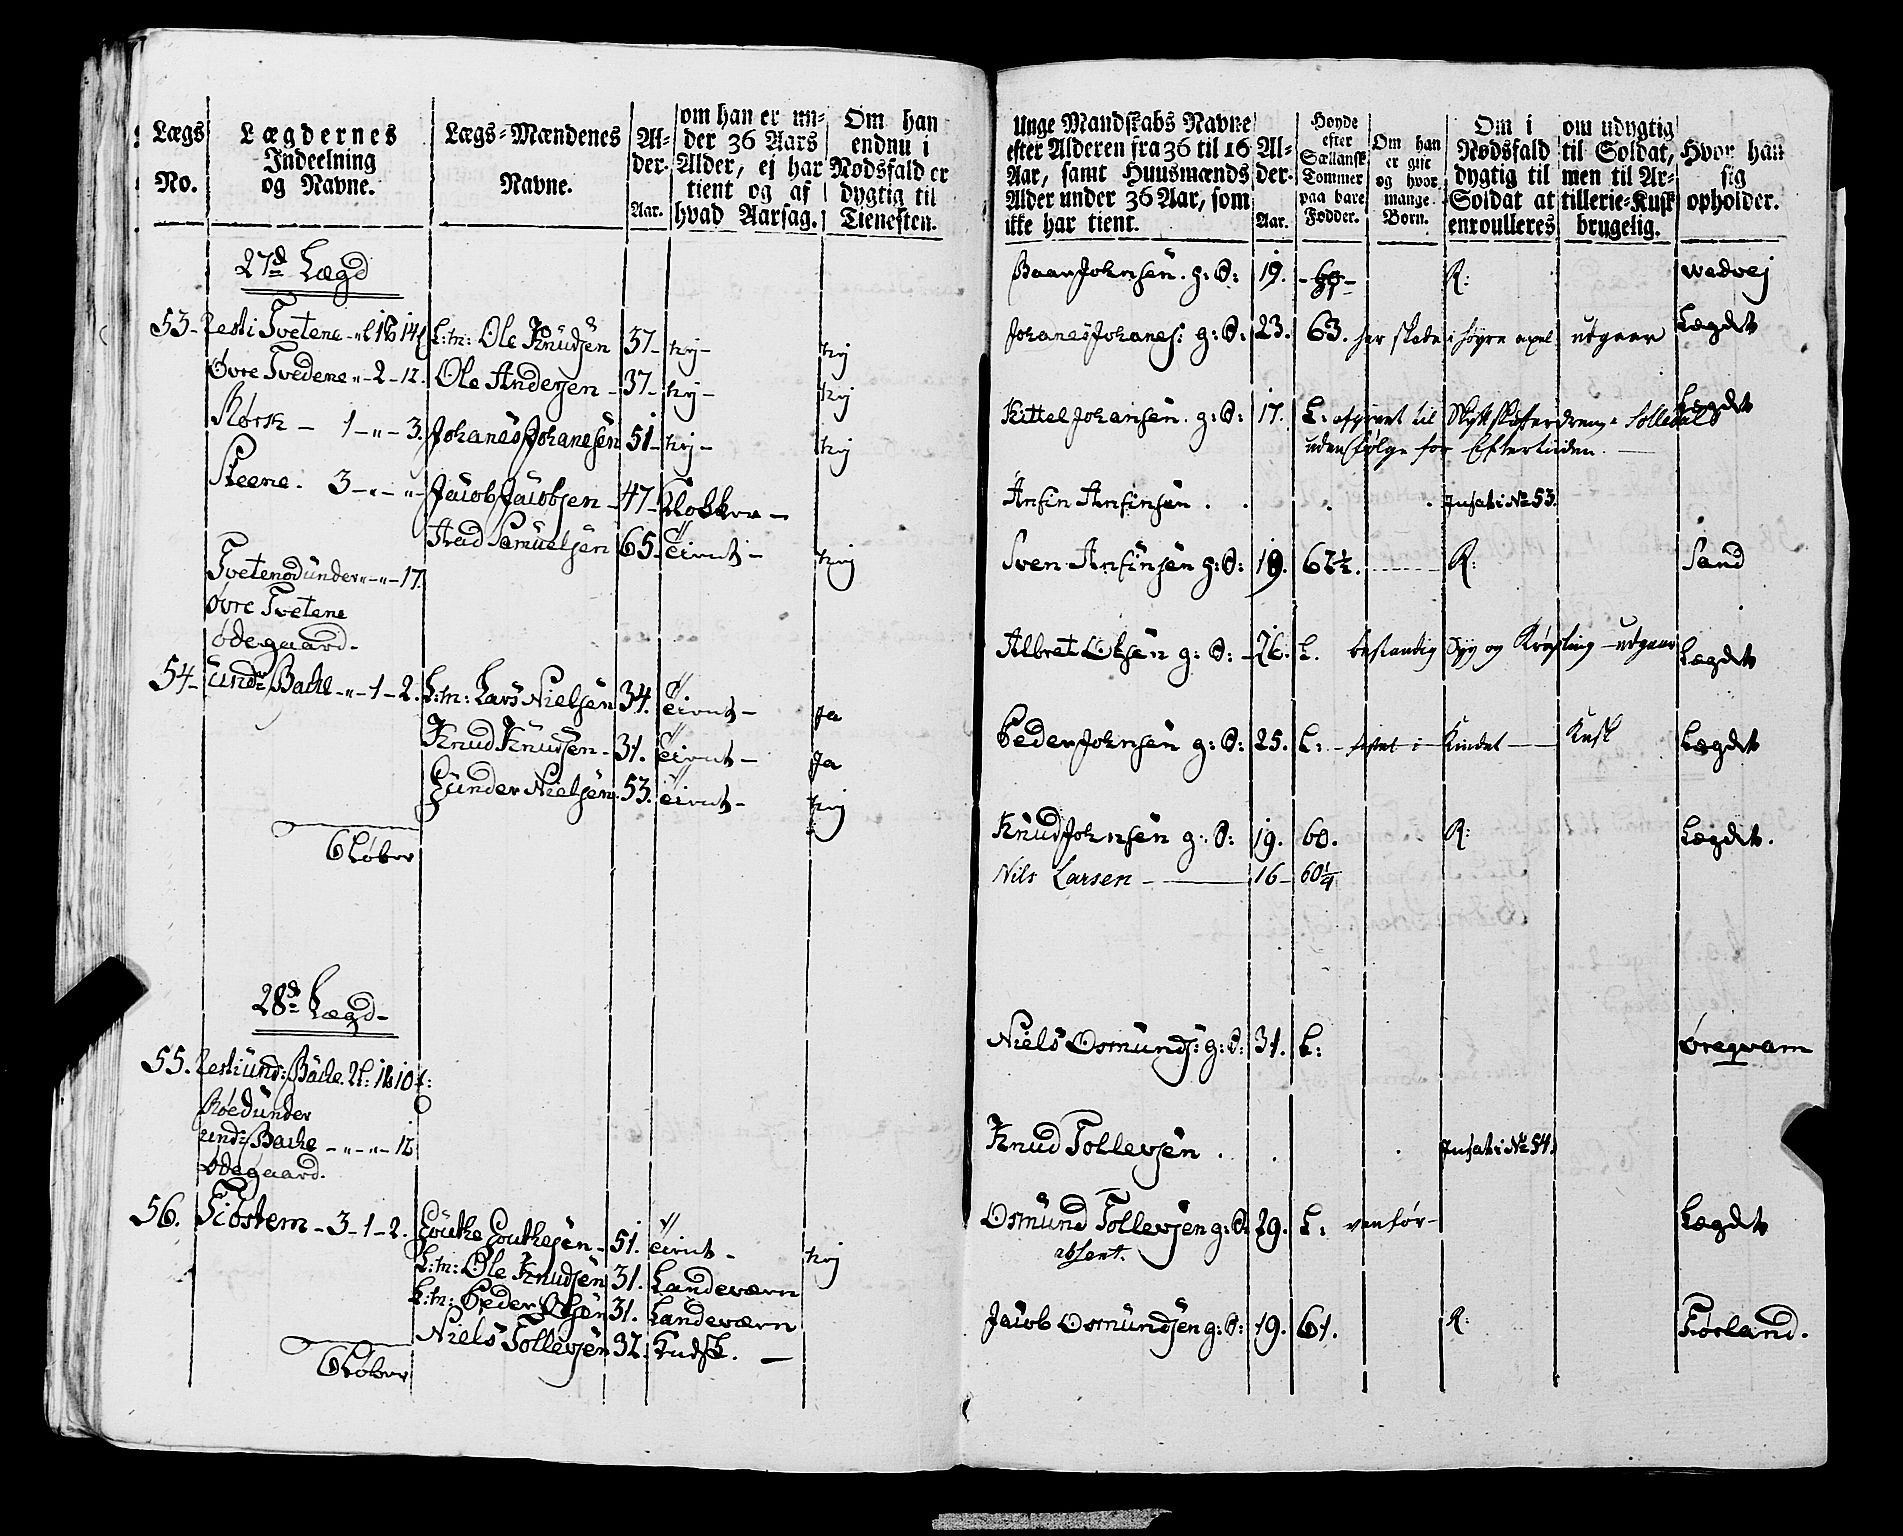 Lægs No.
Lægdernes Indeelning og Navne.
Lægs-Mændenes Navne.
Alder. Aar.
om han er under 36 Aars Alder, ej har tient og af hvad Aarsag.
Om han endnu i Nødsfald er dygtig til Tienesten.
27d Lægd
53 - Rest i Tvetene - Lm: Ole Knudsen 37 - nej - nej
Øvre Tvedene „ - 2 - 12. Ole Andersen - 37 - nej - nej
Rørsk - 1 - „ - 3. Johanes Johanesen 51 - nej - nej
Skeene. 3 - „ - „ - Jacob Jacobsen - 47 - Klokker -
Aad Samuelsen 65. Tient - nej
Tvetenødunder „ - „ - 17.
øvre Tvetene
ødegaard -
54 - und: Bache - „ - 1 - 2. L:m: Lars Nielsen 34. Tient - Ja
Knud Knudsen - 31. Tient - Ja
Gunder Nielsen 53. Tient - nej
6 Løber
28d Lægd -
55. Rest i und: Bache
Røedunder
und: Bache - „ - „ - 12
ødegaard.
56. Fiøstem - 3 - 1 - 2. Gouthe Gouthesen - 51. Tient - nej
L:m: Ole Knudsen 31. Landeværn
L:m: Peder Olsen 31. Landeværn
Niels Tollevsen 32. Kudsk. -
6 Løber
Unge Mandskabs Navne efter Alderen fra 36 til 16 Aar, samt Huusmænds Alder under 36 Aar, som ikke har tient.
Alder. Aar.
Høyde efter Sællansk Tommer paa bare Fødder.
Om han er gift og hvor mange Børn.
Om i Nødsfald dygtig til Soldat at enroulleres
om udygtig til Soldat, men til Artillerie-Kusk brugelig.
Hvor han sig opholder.
Baar Johnsen. g: S: 19. R: Wedvej
Johanes Johanes: g: S: 23. 63. har skade i høyre axel udgaar Lægdet
Kittel Johansen. g: S: 17. L: afgivet til Lægdet
uden følge for Eftertiden.
Anfin Anfinsen . . . . Insat i No 53.
Sven Anfinsen g: S: 19. 62½. R: Sand
Albret Olsen g: S: - 26. L. bestandig Syg og udgaar Lægdet
Peder Johnsen g: S: 25. L: - Kusk Lægdet
Knud Johnsen g: S: 19. 60. R: Lægdet.
Nils Larsen - 16 - 60¼
Niels Osmunds: g: S: 31. L: Øreqvam
Knud Tollevsen . . . Insat i No 54.
Osmund Tollevsen g: S: 29. L: vanfør - Lægdet
absent.
Jacob Osmundsen g: S: 19. 61. R: Førland.